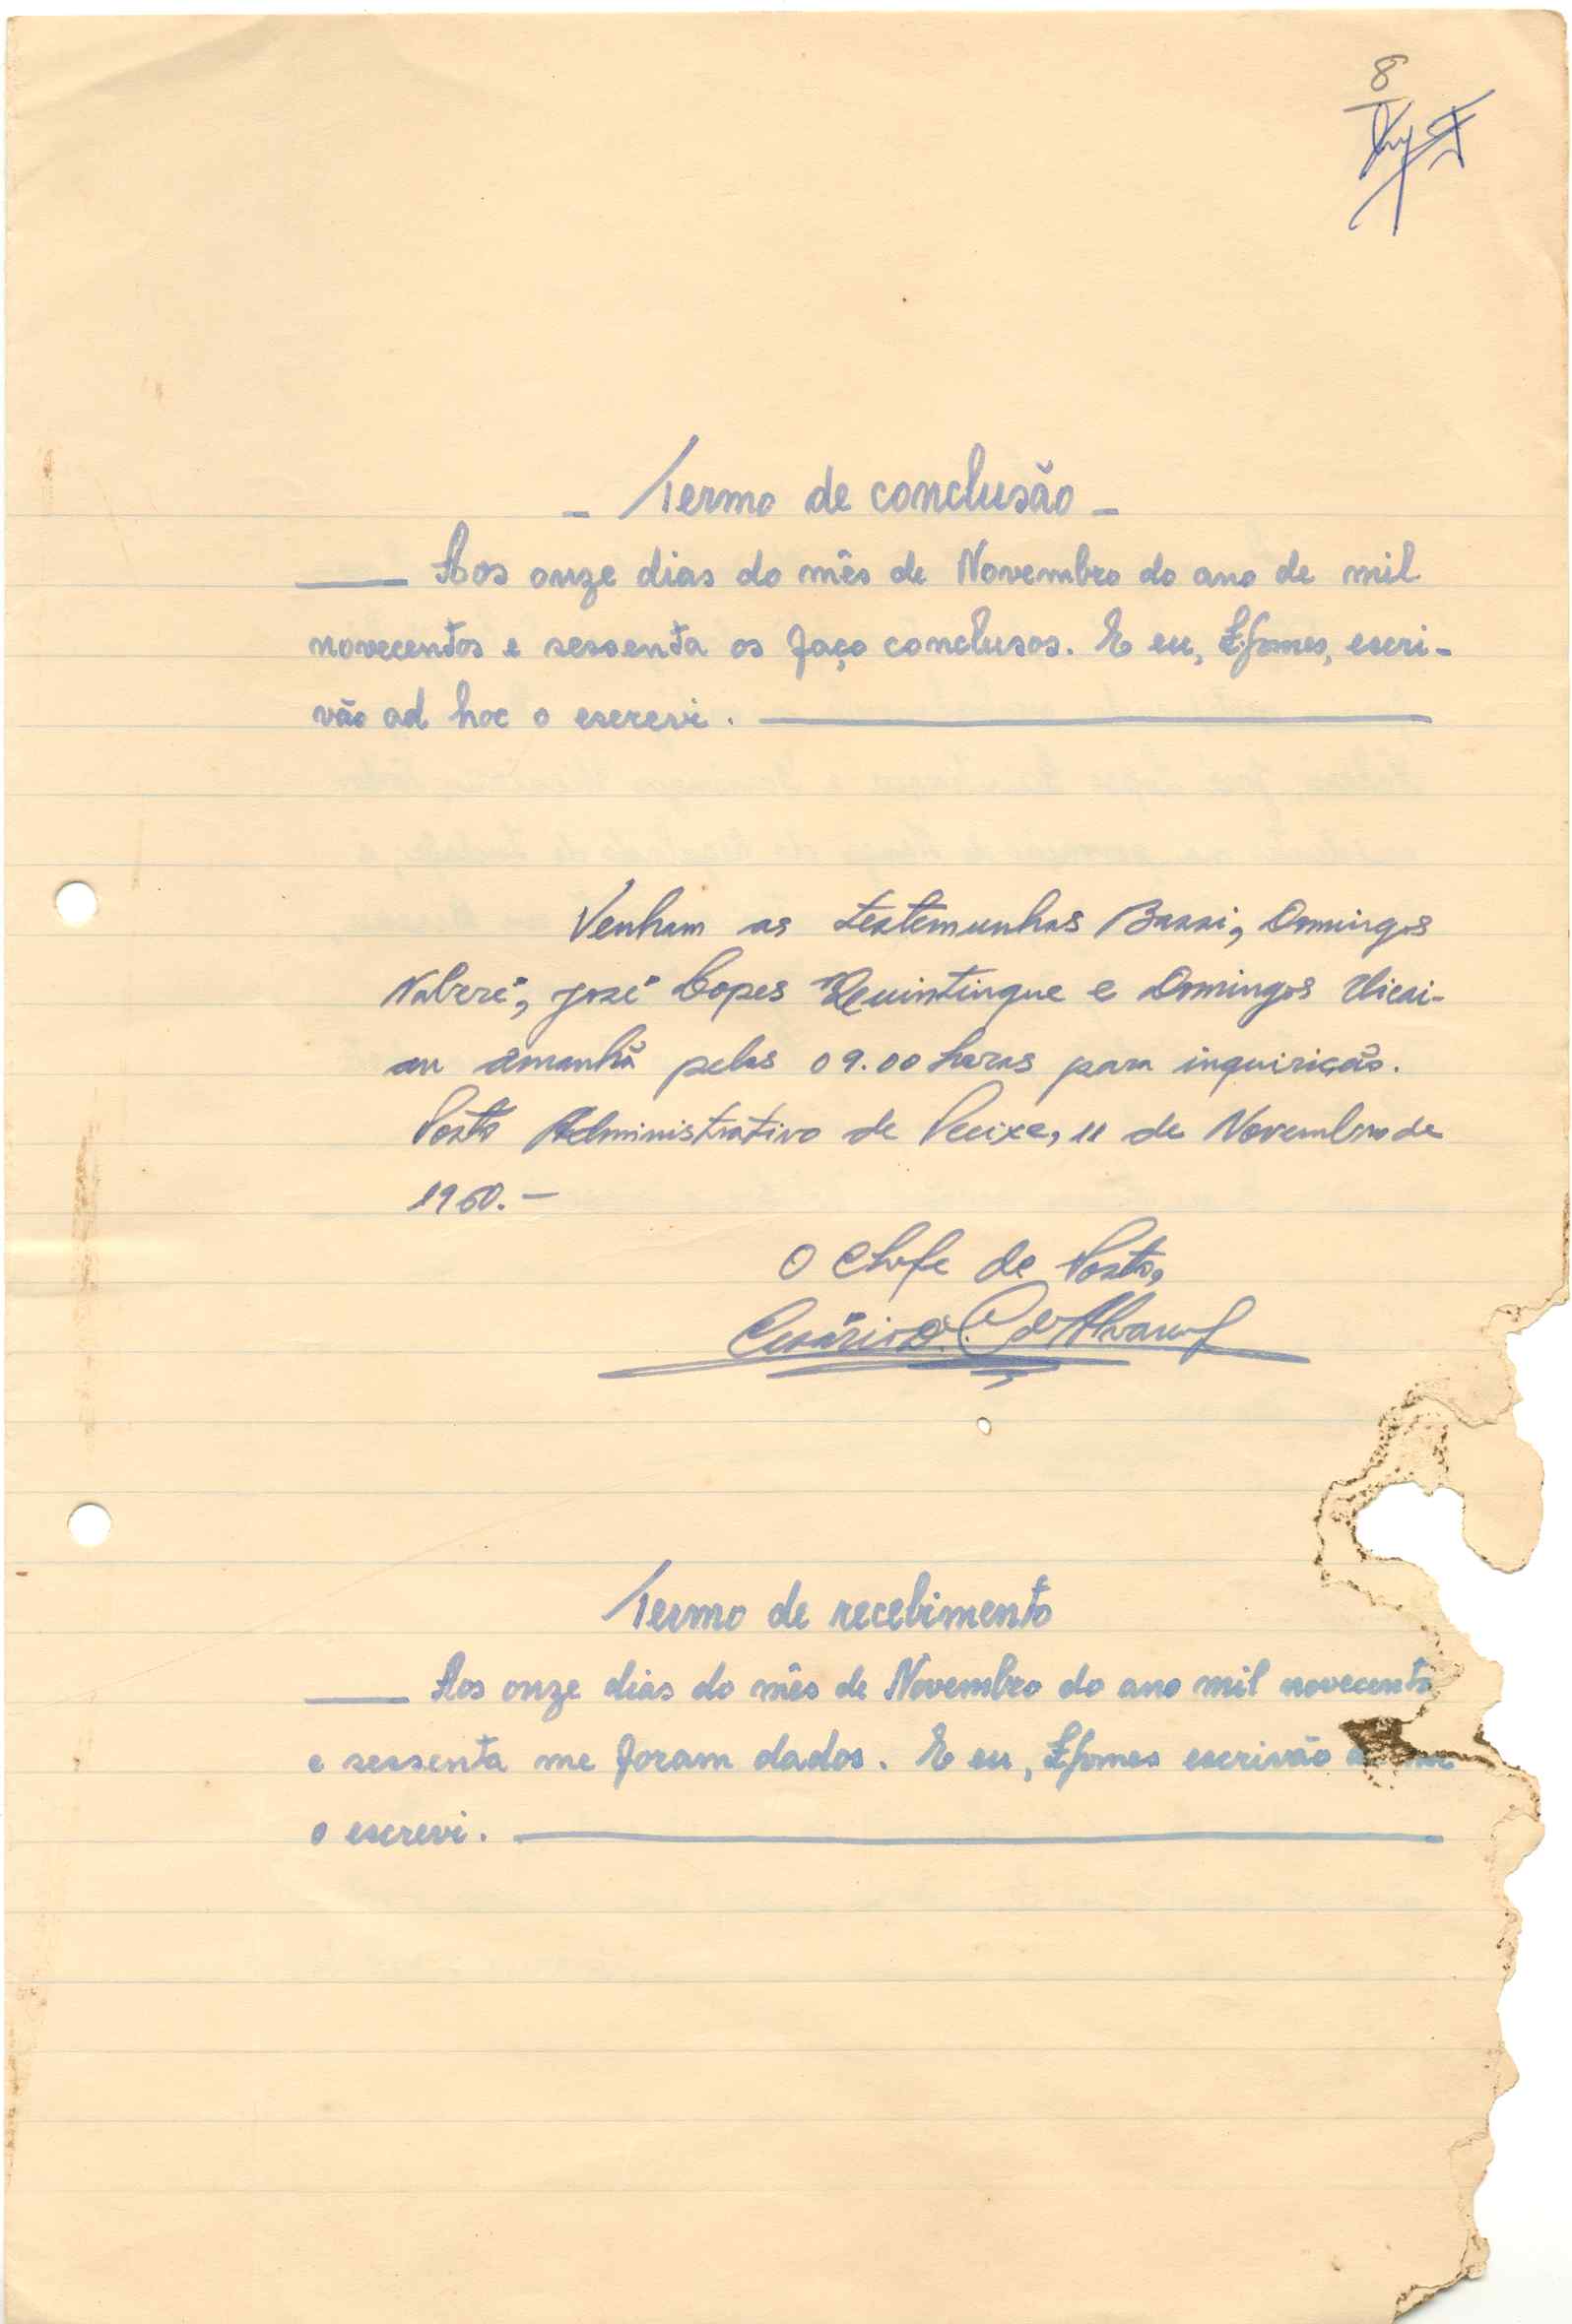 8
- Termo de conclusão -
Aos onze dias do mês de Novembro do ano de mil
novecentos e sessenta os faço conclusos. E eu, escri-
vão ad hoc o escrevi.
Venham as testemunhas Bassi, Domingos
Nabzré, José Lopes Quintingue e Domingos
amanhã pelas 09.00 horas para inquirição.
Posto Administrativo de Pecixe, 11 de Novembro de
1960.-
O Chefe de Posto,
Cesário
Termo de recebimento
Aos onze dias do mês de Novembro do ano mil novecento
e sessenta me foram dados. E eu, escrivão
o escrevi.